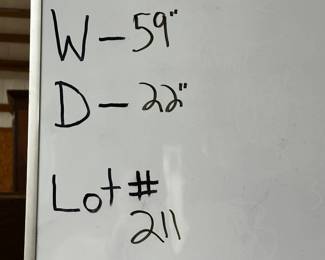 W - 59"
D - 22"
Lot #
211